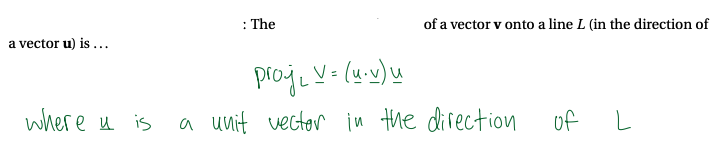 : The of a vector v onto a line L (in the direction of
a vector u) is ...
proj_L v = (u·v)u
where u is a unit vector in the direction of L